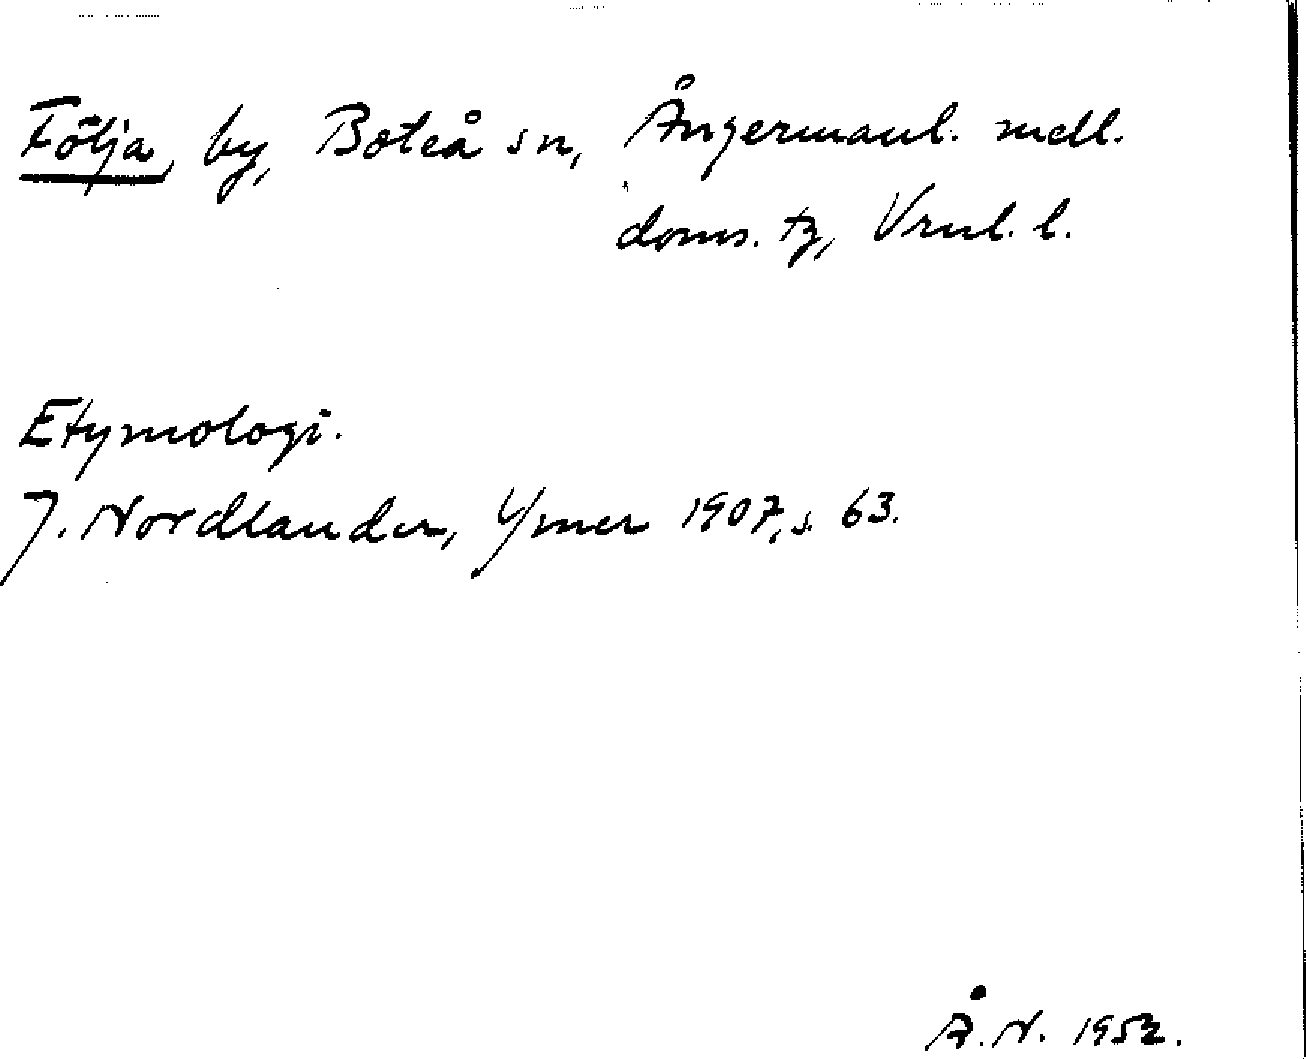 Följa, by, Boteå sn, Ångermanl. mell.
doms. tg, Vrnl. l.
Etymologi.
J. Nordlander, Ymer 1907, s. 63.
Å. N. 1952.